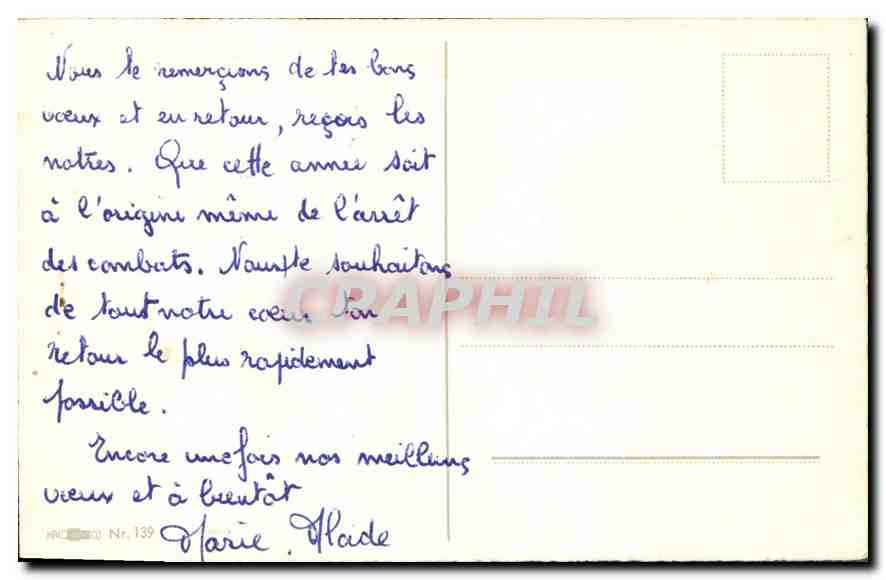 Nous te remerçions de tes bons
vœux et en retour, reçois les
notres. Que cette année soit
à l'origine même de l'arrêt
des combats. Nous te souhaitons
de tout notre cœur ton
retour le plus rapidement
possible.
Encore une fois nos meilleurs
vœux et à bientôt
Nr. 139
Marie.
CRAPHIL